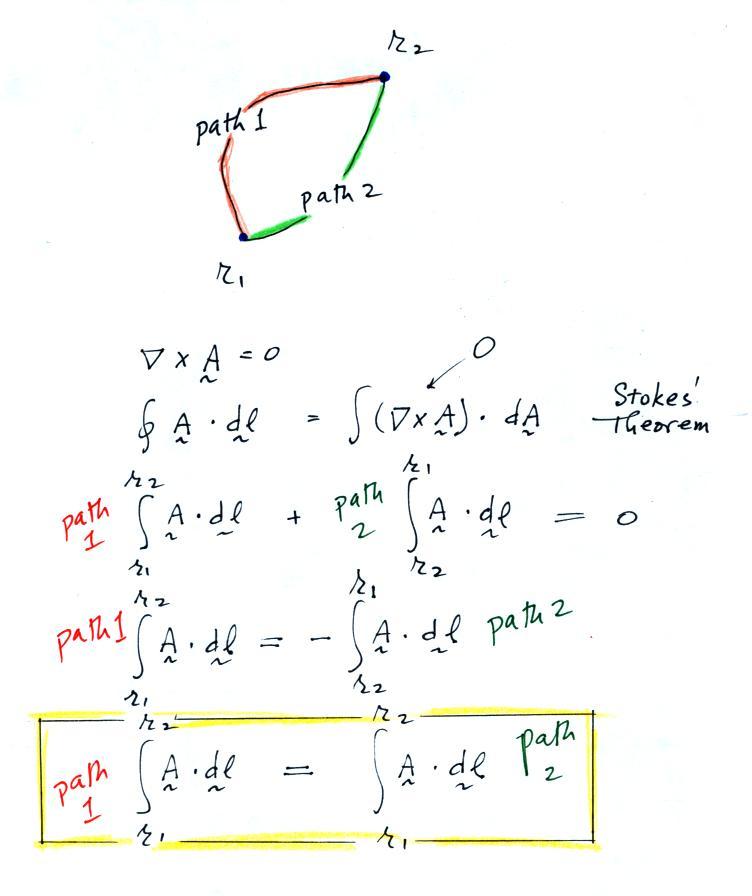 r₂
path 1
path 2
r₁
∇ × A̰ = 0
0
∮ A̰ · d̰l = ∫(∇ × A̰) · dA̰ Stokes' Theorem
path 1 ∫_{r₁}^{r₂} A̰ · d̰l + path 2 ∫_{r₂}^{r₁} A̰ · d̰l = 0
path 1 ∫_{r₁}^{r₂} A̰ · d̰l = - ∫_{r₂}^{r₁} A̰ · d̰l path 2
path 1 ∫_{r₁}^{r₂} A̰ · d̰l = ∫_{r₁}^{r₂} A̰ · d̰l path 2